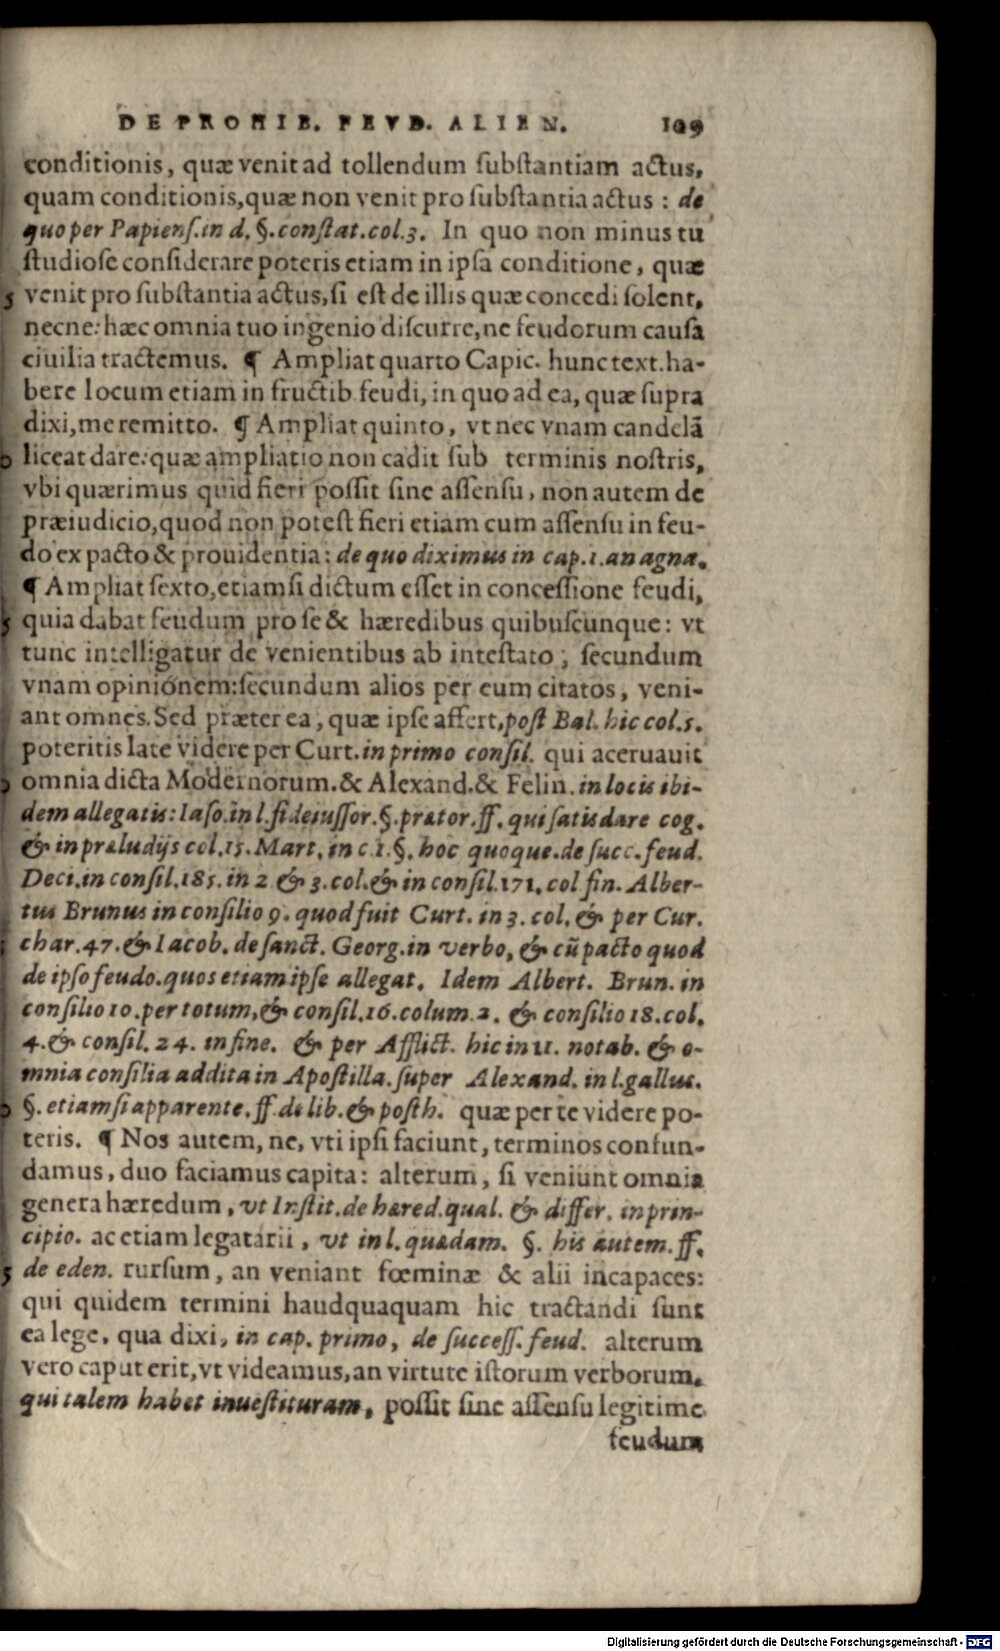 DE PROHIB. FEVD. ALIEN. 109
conditionis, quæ venit ad tollendum substantiam actus,
quam conditionis, quæ non venit pro substantia actus : de
quo per Papiens. in d. §. constat. col. 3. In quo non minus tu
studiose considerare poteris etiam in ipsa conditione, quæ
5 venit pro substantia actus, si est de illis quæ concedi solent,
necne: hæc omnia tuo ingenio discurre, ne feudorum causa
ciuilia tractemus. ¶ Ampliat quarto Capic. hunc text. ha-
bere locum etiam in fructib feudi, in quo ad ea, quæ supra
dixi, me remitto. ¶ Ampliat quinto, vt nec vnam candelã
0 liceat dare: quæ ampliatio non cadit sub terminis nostris,
vbi quærimus quid fieri possit sine assensu, non autem de
præiudicio, quod non potest fieri etiam cum assensu in feu-
do ex pacto & prouidentia: de quo diximus in cap. 1. an agna.
¶ Ampliat sexto, etiamsi dictum esset in concessione feudi,
5 quia dabat feudum pro se & hæredibus quibuscunque: vt
tunc intelligatur de venientibus ab intestato, secundum
vnam opinionem: secundum alios per eum citatos, veni-
ant omnes. Sed præter ea, quæ ipse affert, post Bal. hic col. 5.
poteritis late videre per Curt. in primo consil. qui aceruauit
0 omnia dicta Modernorum. & Alexand. & Felin. in locis ibi-
dem allegatis: Iaso. in l. fideiussor. §. prætor. ff. qui satisdare cog.
& in præludijs col. 15. Mart. in c. 1. §. hoc quoque. de succ. feud.
Deci. in consil. 185. in 2 & 3. col. & in consil. 171. col fin. Alber-
tus Brunus in consilio 9. quod fuit Curt. in 3. col. & per Cur.
char. 47. & Iacob. de sanct. Georg. in verbo, & cũ pacto quod
de ipso feudo. quos etiam ipse allegat. Idem Albert. Brun. in
consilio 10. per totum, & consil. 16. colum. 2. & consilio 18. col.
4. & consil. 24. in fine. & per Afflict. hic in 11. notab. & o-
mnia consilia addita in Apostilla. super Alexand. in l. gallus.
0 §. etiamsi apparente. ff. de lib. & posth. quæ per te videre po-
teris. ¶ Nos autem, ne, vti ipsi faciunt, terminos confun-
damus, duo faciamus capita: alterum, si veniunt omnia
genera hæredum, vt Instit. de hæred. qual. & differ. in prin-
cipio. ac etiam legatarii, vt in l. quædam. §. his autem. ff.
5 de eden. rursum, an veniant fœminæ & alii incapaces:
qui quidem termini haudquaquam hic tractandi sunt
ea lege, qua dixi, in cap. primo, de success. feud. alterum
vero caput erit, vt videamus, an virtute istorum verborum,
qui talem habet inuestituram, possit sine assensu legitime
feudum
Digitalisierung gefördert durch die Deutsche Forschungsgemeinschaft - DFG